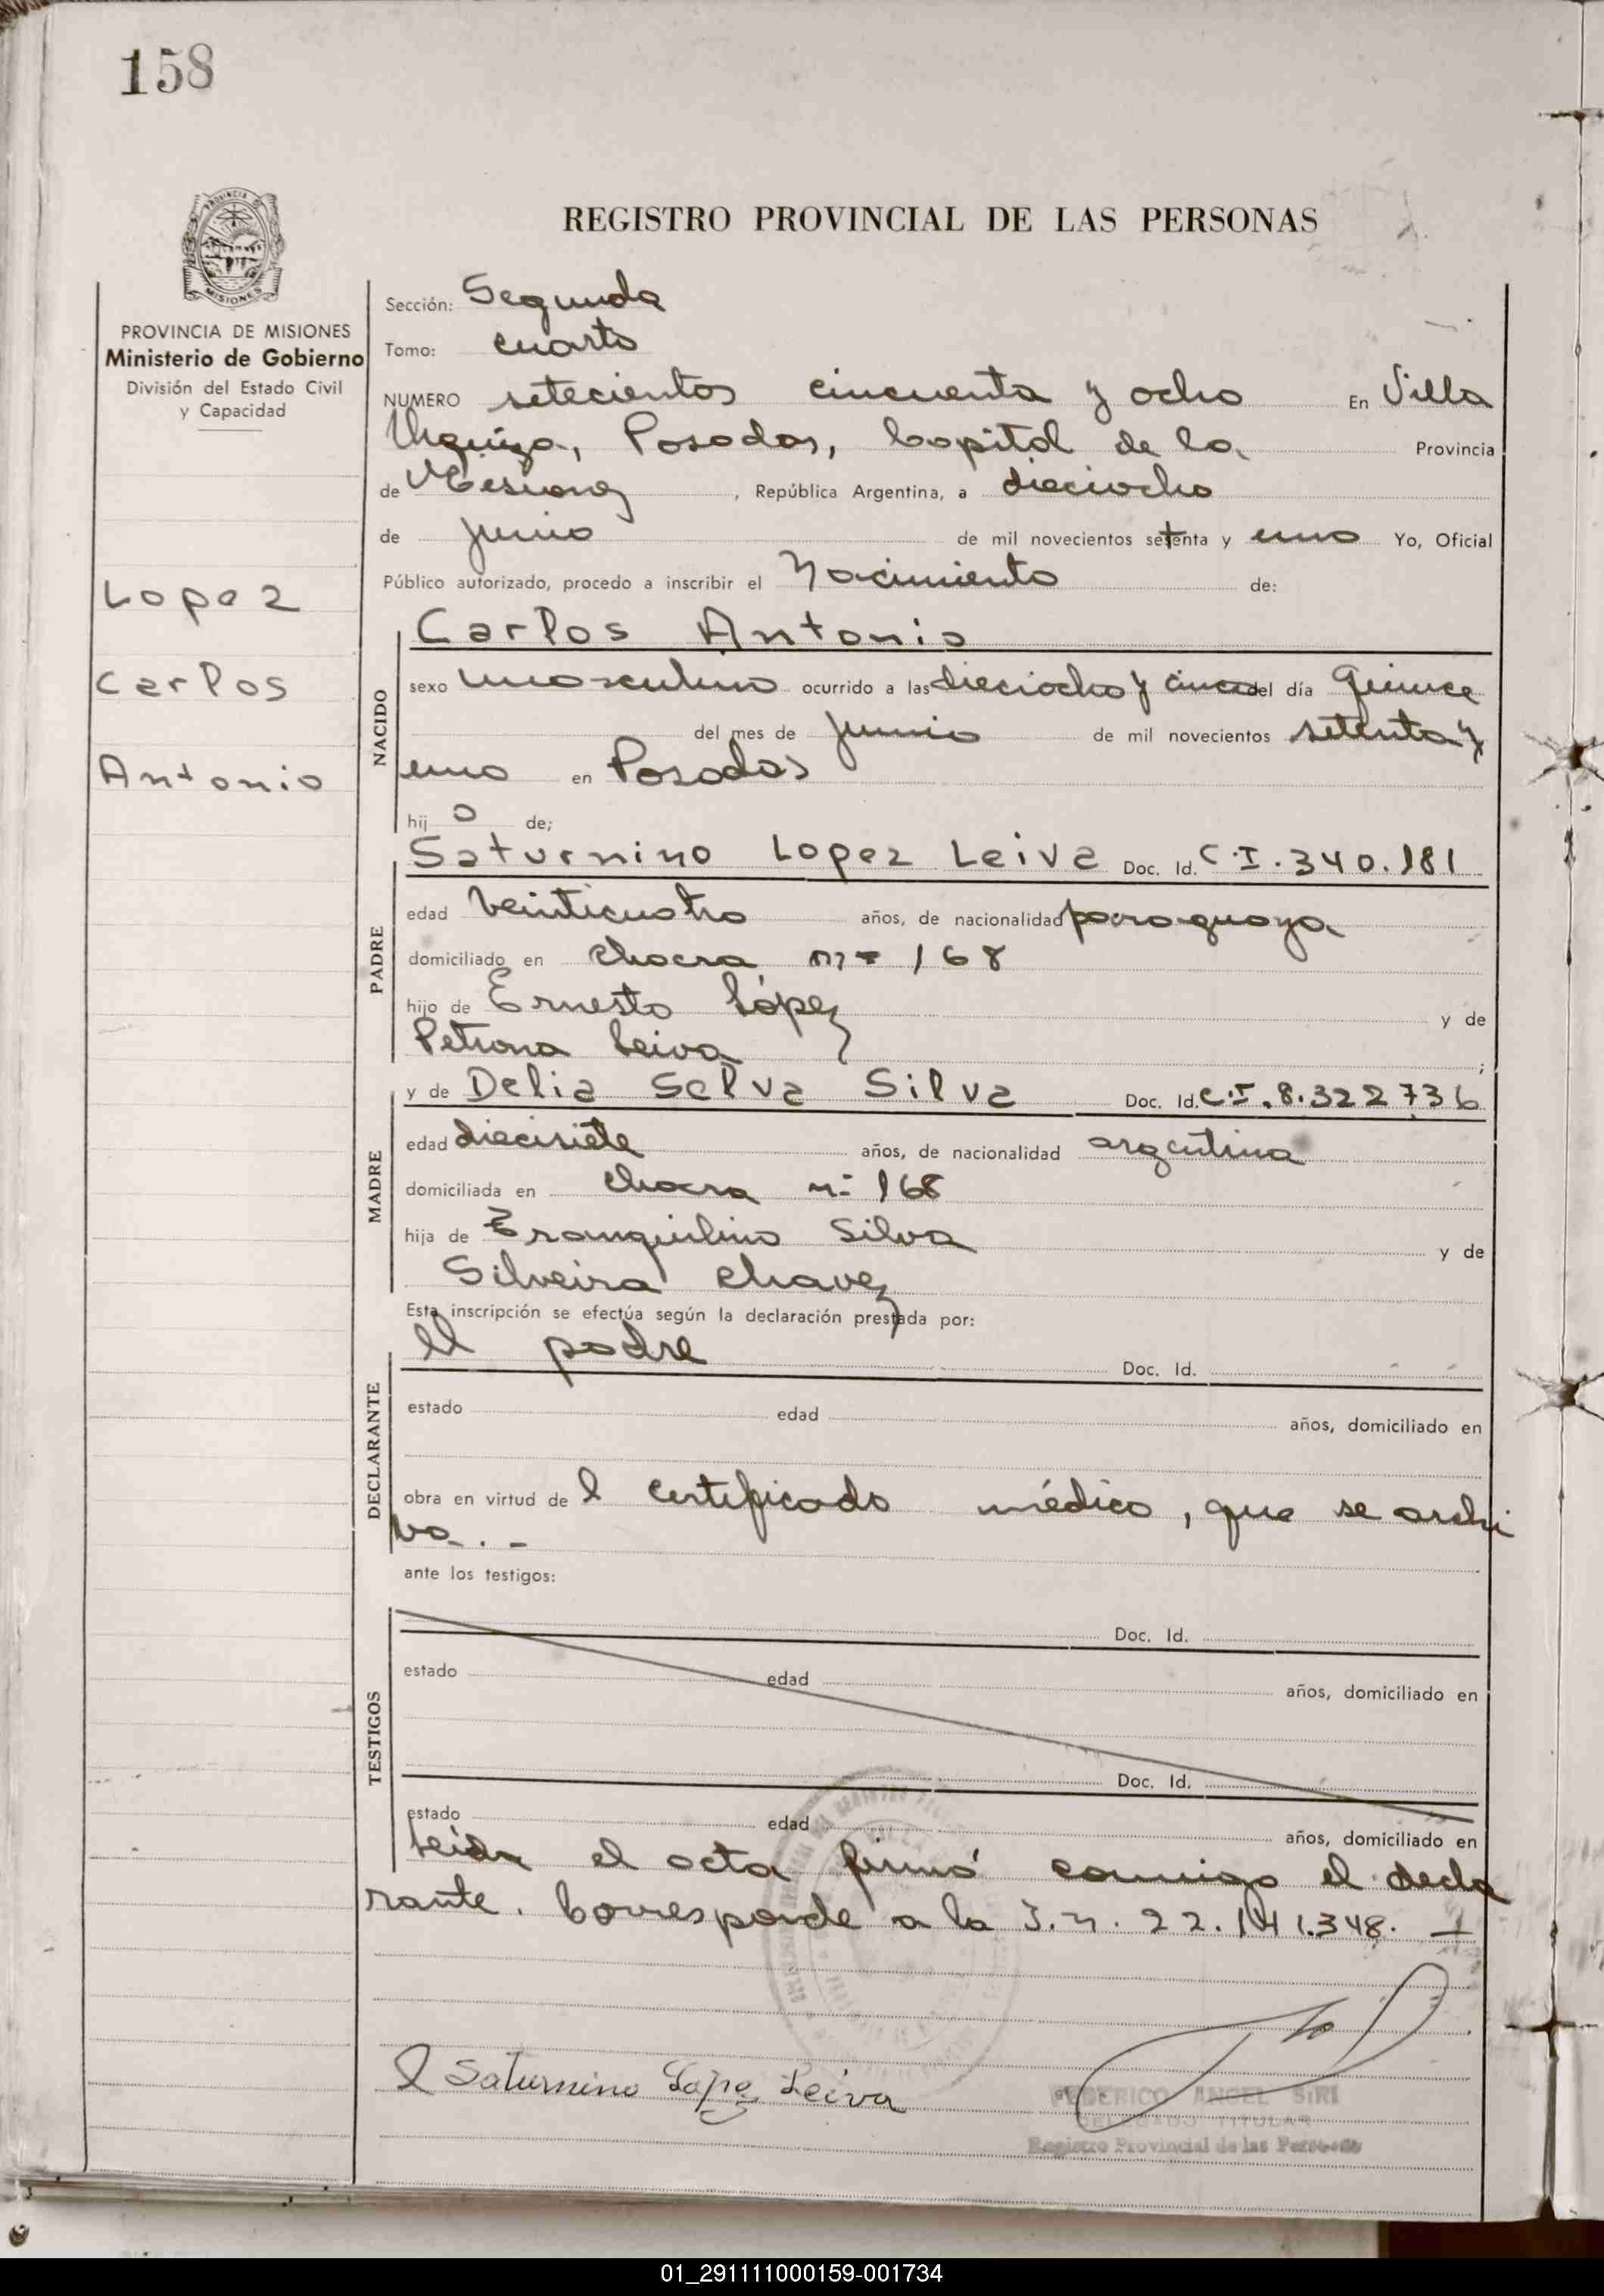 158
REGISTRO PROVINCIAL DE LAS PERSONAS
PROVINCIA DE
MISIONES
PROVINCIA DE MISIONES
Ministerio de Gobierno
División del Estado Civil
y Capacidad
Lopez
Carlos
Antonio
Sección: Segunda
Tomo: cuarto
NUMERO setecientos cincuenta y ocho En Villa
Urquiza, Posadas, Capital de la Provincia
de Misiones, República Argentina, a dieciocho
de junio de mil novecientos setenta y uno Yo, Oficial
Público autorizado, procedo a inscribir el Nacimiento de:
NACIDO
Carlos Antonio
sexo masculino ocurrido a las dieciocho y cinco del día quince
del mes de junio de mil novecientos setenta y
uno en Posadas
hijo de;
PADRE
Saturnino Lopez Leiva Doc. Id. C.I. 340.181
edad veinticuatro años, de nacionalidad paraguaya
domiciliado en chacra nº 168
hijo de Ernesto López y de
Petrona Leiva ;
MADRE
y de Delia Selva Silva Doc. Id. C.I. 8.322736
edad diecisiete años, de nacionalidad argentina
domiciliada en chacra nº 168
hija de Tranquilino Silva y de
Silveira Chavez
Esta inscripción se efectúa según la declaración prestada por:
DECLARANTE
el padre Doc. Id.
estado edad años, domiciliado en
obra en virtud del certificado médico, que se archi
va. -
ante los testigos:
TESTIGOS
Doc. Id.
estado edad años, domiciliado en
Doc. Id.
estado edad años, domiciliado en
Leida el acta firmó conmigo el decla
rante. Corresponde a la I.n. 22.141.348. -
Saturnino Lopez Leiva
FEDERICO ANGEL SIRI
DELEGADO TITULAR
Registro Provincial de las Personas
01_291111000159-001734